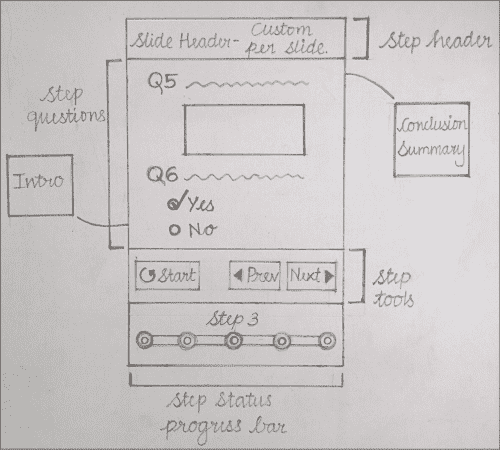 Slide Header- Custom
per slide.
Step header
Step
questions
Q5
Conclusion
Summary
Intro
Q6
Yes
No
Start
Prev
Next
Step
tools
Step 3
Step Status
progriss bar